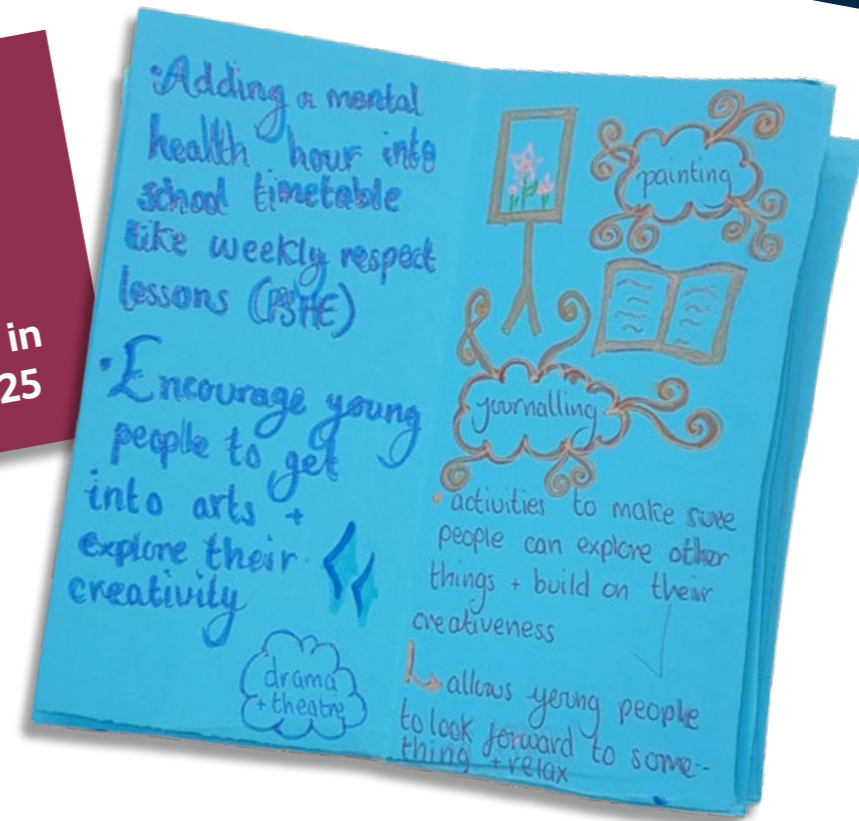 in
25
•Adding a mental
health hour into
school timetable
like weekly respect
lessons (PSHE)
•Encourage young
people to get
into arts +
explore their
creativity
drama
+ theatre
painting
journalling
• activities to make sure
people can explore other
things + build on their
creativeness
↳ allows young people
to look forward to some-
thing + relax